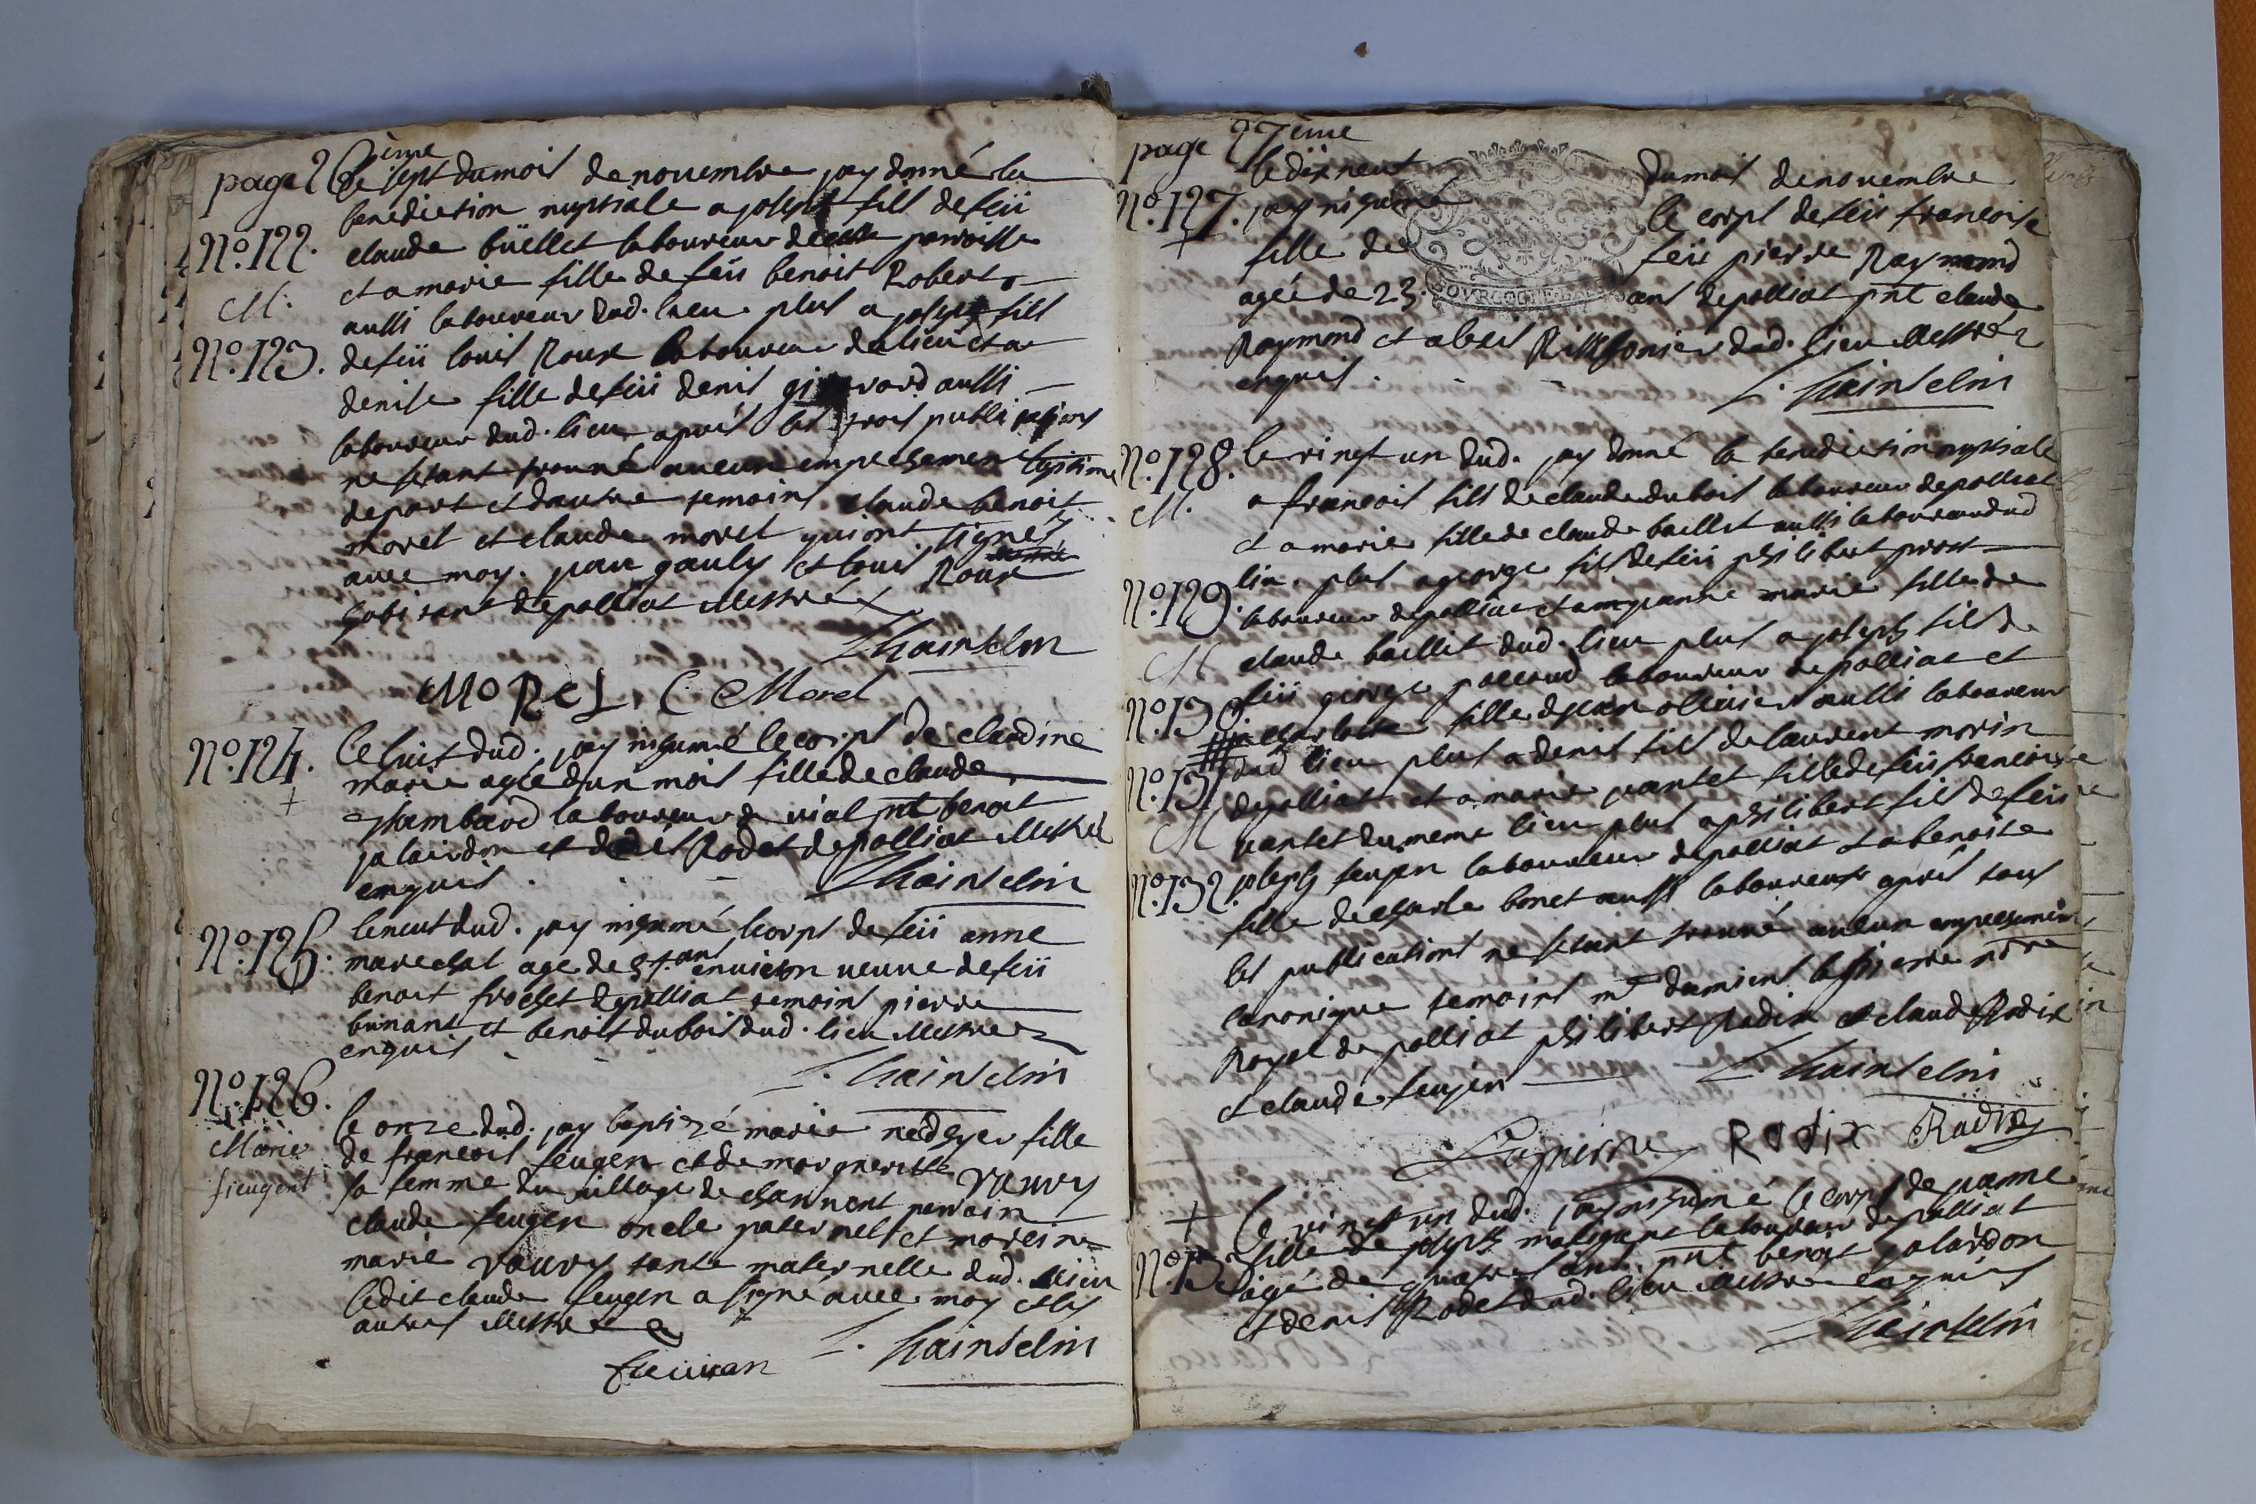 page 26ème
le sept du mois de novembre jay donné la
benediction nuptiale a joseph fill de feü
No. 122. claude büellet laboureur de cette parroisse
et a marie fille de feü benoit Robert
M. aussi laboureur dud. lieu. plus a joseph fill
No. 123. de feü louis Roux laboureur du lieu et a
denise fille de feü denis girard aussi
laboureur dud. lieu apres les trois publications
ne setant trouvé aucun empechement legitime
de part et dautre temoins claude benoit
morel et claude morel qui ont signéz
avec moy. jean gauly et louis Roux
habitant de polliat illettrez
Chainselin
MOREL C Morel
No. 124. le huit dud. jay inhumé le corps de claudine
marie agée d'un mois fille de claude
+ chambard laboureur de vial pnt benoit
palairdon et denis Rodet de polliat illettrés
enquis.
Chainselin
No. 125. le neuf dud. jay inhumé le corps de feü anne
+ marechal age de 57. ans environ veuve de feü
benoit frochet de polliat temoins pierre
bunant et benoit dubois dud. lieu illettrez
enquis
Chainselin
No. 126.
le onze dud. jay baptizé marie née d'hyer fille
Marie de francois feugen et de marguerite vauvy
fieugent sa femme du village de charmont parrain
claude feugen oncle paternel et mareine
marie vauvy tante maternelle dud. lieu
ledit claude feugen a signé avec moy et les
autres illettrez
Chainselin
page 27ème
le dix neuf du mois de novembre
No. 127. jay inhumé le corps de feü francoise
+ fille de feü pierre Raymond
BOURGOGNE
agée de 23. ans de polliat pnt claude
Raymond et alexis dud. lieu illettréz
enquis.
Chainselin
No. 128. le vingt un dud. jay donné la benediction nuptiale
M. a francois fill de claude dubois laboureur de polliat
et a marie fille de claude baillet aussi laboureur dud
lieu. plus a george fils de feü philibert prost
No. 129. laboureur de polliat et a jeanne marie fille de
M claude baillet dud. lieu plus a joseph fils de
feü george paccoud laboureur de polliat et
No. 130 charlotte fille de jean ollivier aussi laboureur
dud lieu plus a denis fils de laurent morin
No. 131 de polliat et a marie vantet fille de feü francois
M vantet du meme lieu plus a philibert fils de feü
No. 132. joseph feugen laboureur de polliat et a benoite
fille de charle bonet aussi laboureur après tous
les publications ne setant trouvé aucun empechement
canonique temoins mr damiens lapierre nore
Royal de polliat philibert Rodix et claude Rodix
et claude feugen
Chainselin
Lapierre Rodix Rudix
+ le vingt un dud. jay inhumé le corps de jeanne
fille de joseph maligant laboureur de polliat
agé de quatres ans. pnt benoit palairdon
et denis Rodet dud. lieu illettrez enquis
Chainselin